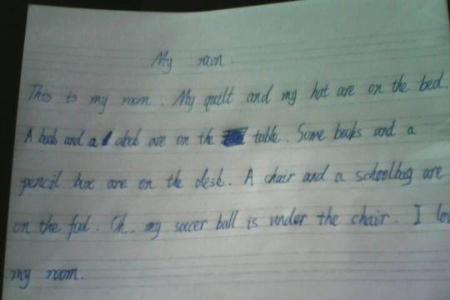 My room.
This is my room. My quilt and my hat are on the bed.
A and a are on the table. Some books and a
pencil box are on the desk. A chair and a schoolbag are
on the . Oh, my soccer ball is under the chair. I
my room.